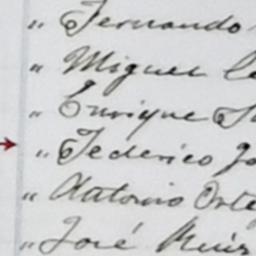 " Fernando
" Miguel
" Enrique
" Federico
" Antonio Orte
" José Ruiz